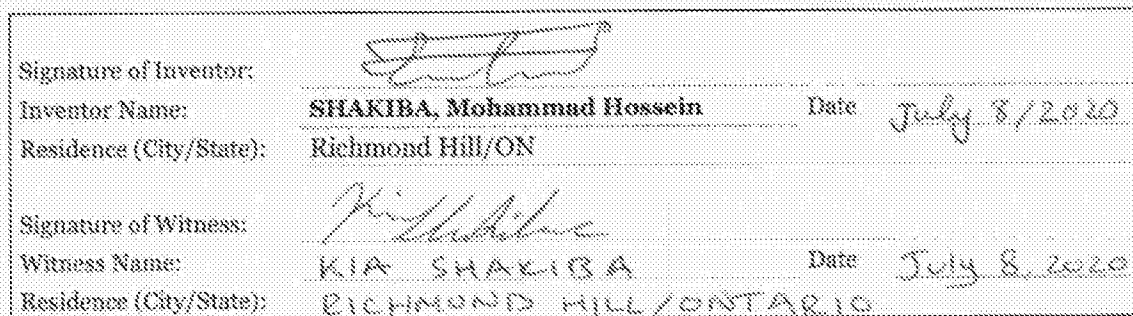 Signature of Inventor:
Inventor Name: SHAKIBA, Mohammad Hossein Date July 8/2020
Residence (City/State): Richmond Hill/ON
Signature of Witness:
Witness Name: KIA SHAKIBA Date July 8, 2020
Residence (City/State): RICHMOND HILL/ONTARIO